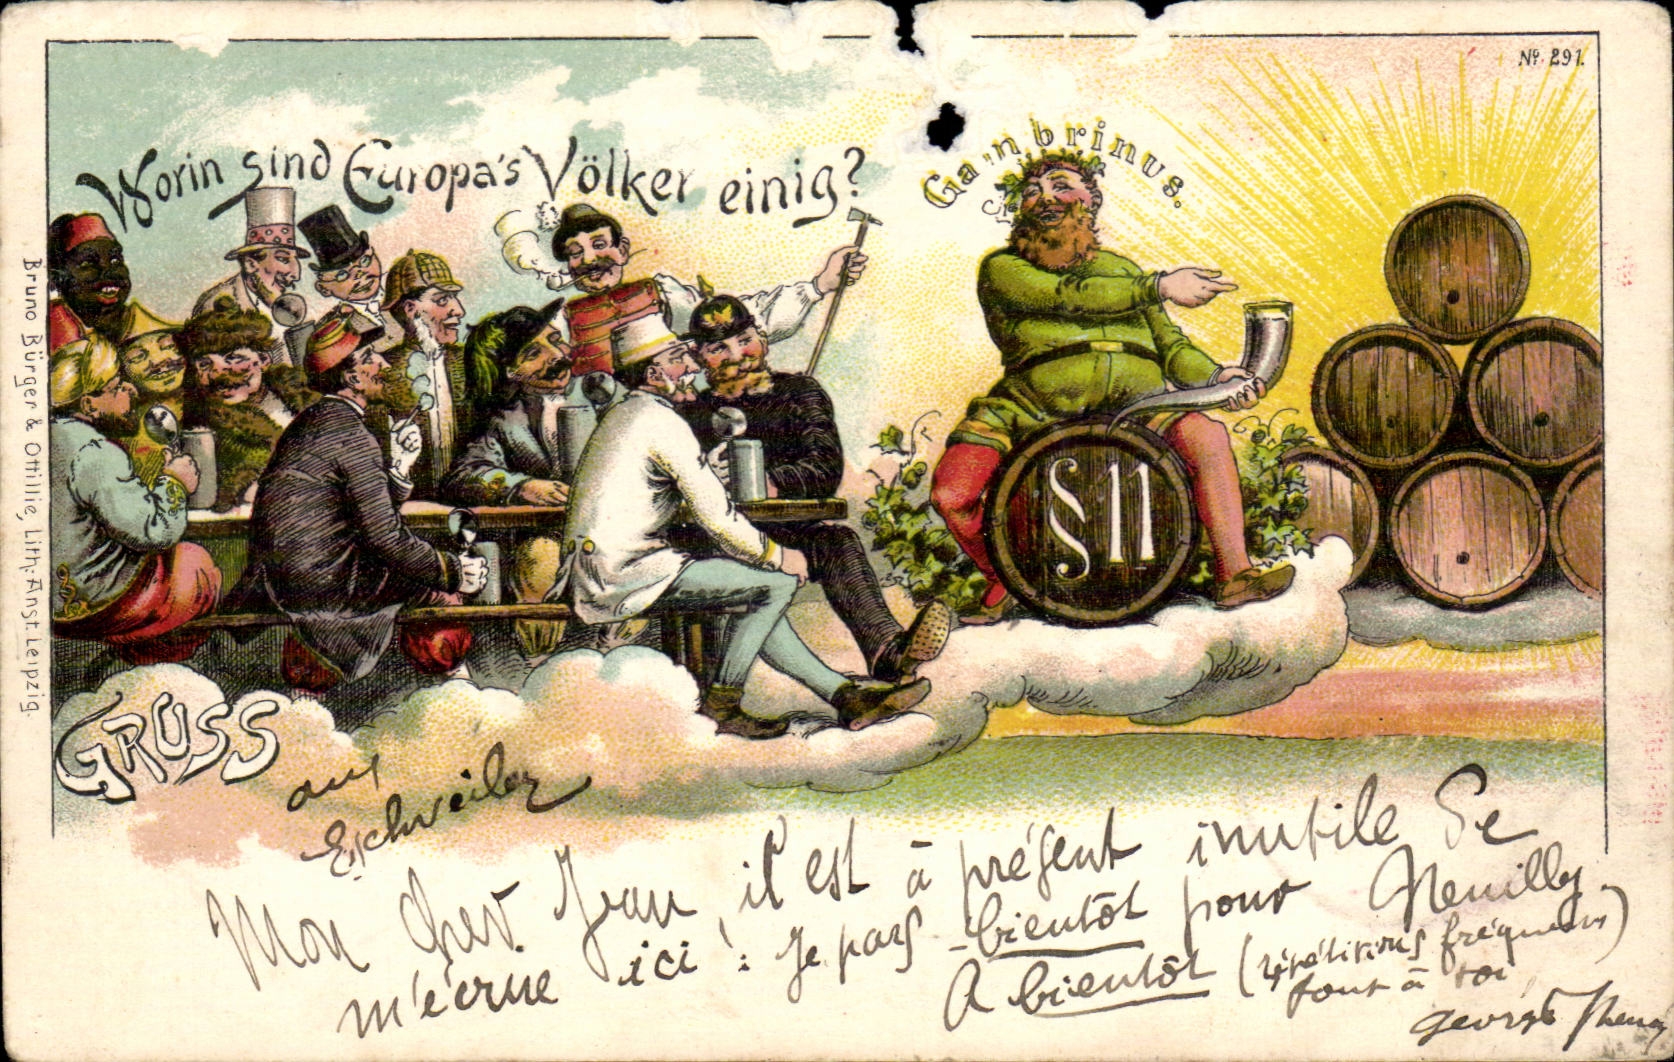 Nº 291.
Worin sind Europa's Völker einig?
Gambrinus.
§ 11
Bruno Bürger & Ottillie, Lith. Anst. Leipzig.
GRUSS
aus
Eschweiler
Mon cher Jean, il est à présent inutile de
m'écrire ici ! Je pars bientôt pour Neuilly.
A bientôt (répétitions fréquentes)
tout à toi
Georges